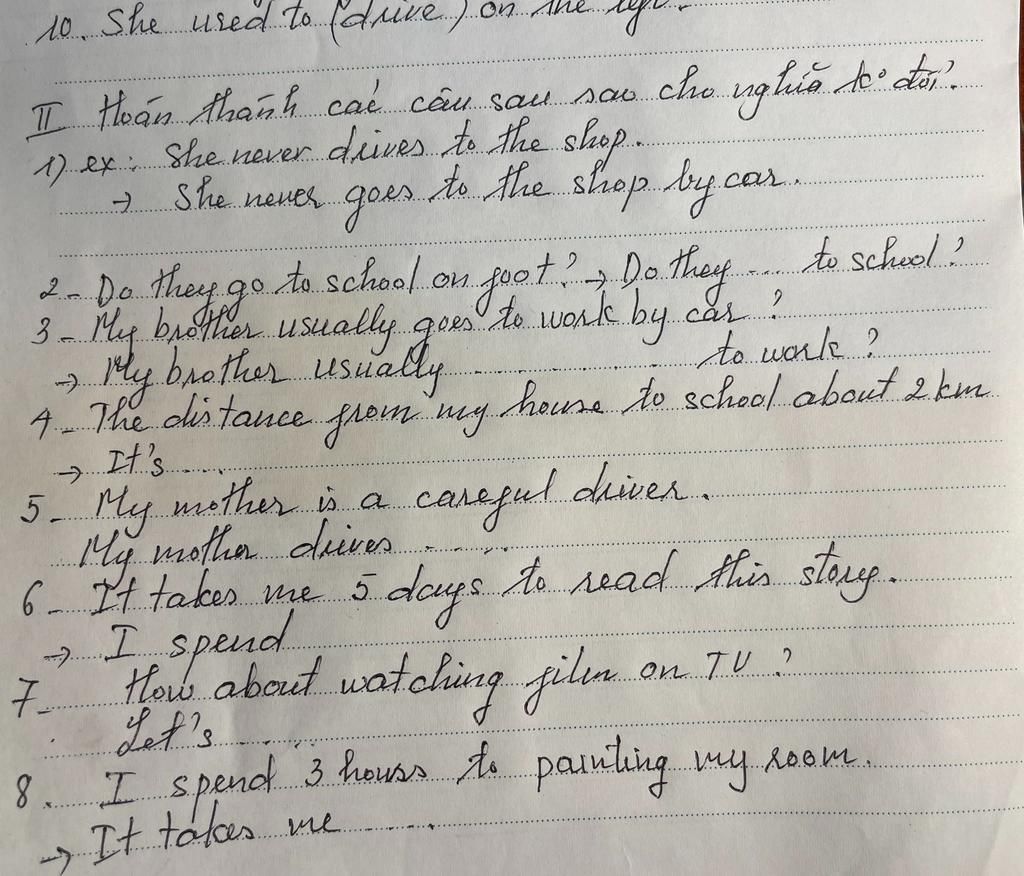 10. She used to (drive) on the left.
II Hoán thành các câu sau sao cho nghĩa k° đổi.
1) ex: She never drives to the shop.
→ She never goes to the shop by car.
2- Do they go to school on foot? → Do they .... to school?
3- My brother usually goes to work by car?
→ My brother usually .................. to work?
4- The distance from my house to school about 2 km
→ It's .....
5- My mother is a careful driver.
My mother drives ........
6- It takes me 5 days to read this story.
→ I spend
7- How about watching film on TV?
Let's ........
8. I spend 3 hours to painting my room.
→ It takes me ........